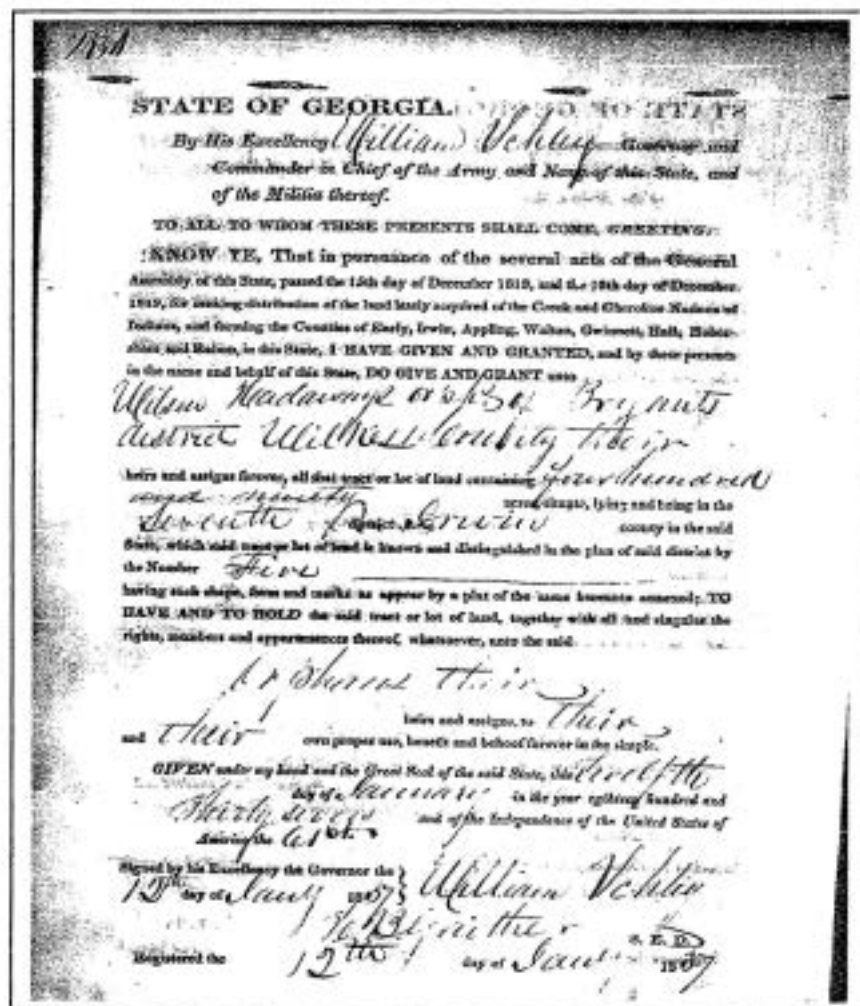 STATE OF GEORGIA.
By His Excellency William Schley Governor and
Commander in Chief of the Army and Navy of this State, and
of the Militia thereof.
TO ALL TO WHOM THESE PRESENTS SHALL COME, GREETING:
KNOW YE, That in pursuance of the several acts of the General
Assembly of this State, passed the 15th day of December 1818, and the 16th day of December,
1819, for making distribution of the land lately acquired of the Creek and Cherokee Nations of
Indians, and forming the Counties of Early, Irwin, Appling, Walton, Gwinnett, Hall, Haber-
sham and Rabun, in this State, I HAVE GIVEN AND GRANTED, and by these presents
in the name and behalf of this State, DO GIVE AND GRANT unto
Wilson Hadaways orps of Bryants
district Wilkes County their
heirs and assigns forever, all that tract or lot of land containing four hundred
and ninety acres, lying and being in the
Seventh district Irwin county in the said
State, which said tract or lot of land is known and distinguished in the plan of said district by
the Number Five
having such shape, form and marks as appear by a plat of the same hereunto annexed; TO
HAVE AND TO HOLD the said tract or lot of land, together with all and singular the
rights, members and appurtenances thereof, whatsoever, unto the said
orphans their
heirs and assigns, to their
and their own proper use, benefit and behoof forever in fee simple.
GIVEN under my hand and the Great Seal of the said State, this twelfth
day of January in the year eighteen hundred and
Thirty seven and of the Independence of the United States of
America the 61st.
Signed by his Excellency the Governor the
12th day of Jany 1837 William Schley
S. E. D.
Registered the 12th day of Jany 1837